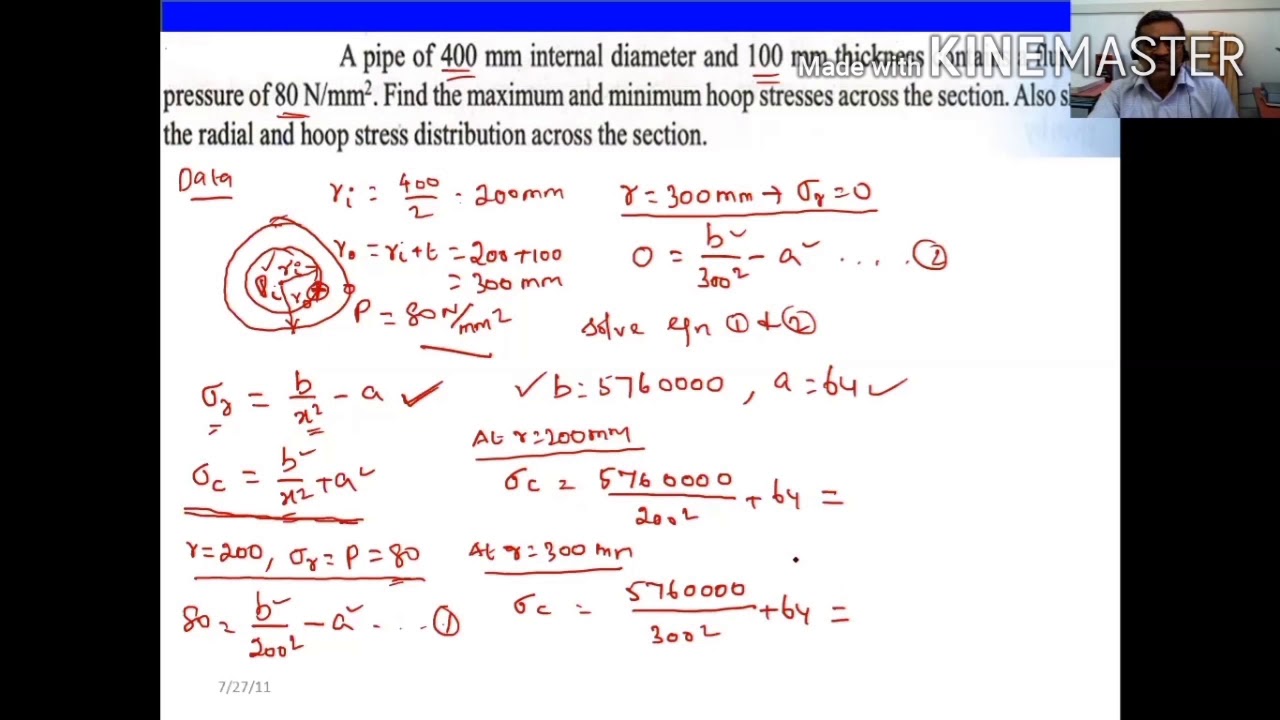 A pipe of 400 mm internal diameter and 100 mm thickness
pressure of 80 N/mm². Find the maximum and minimum hoop stresses across the section. Also
the radial and hoop stress distribution across the section.
Made with KINEMASTER
Data
rᵢ = 400/2 = 200mm
r₀ = rᵢ+t = 200+100
= 300 mm
P = 80 N/mm²
Pᵢ rᵢ r₀
σᵣ = b/x² - a
σc = b/x² + a
r=200, σᵣ = P = 80
80 = b/200² - a ... ①
r = 300mm → σᵣ = 0
0 = b/300² - a .... ②
solve eqn ① & ②
b = 5760000, a = 64
At r=200mm
σc = 5760000/200² + 64 =
At r=300 mm
σc = 5760000/300² + 64 =
7/27/11